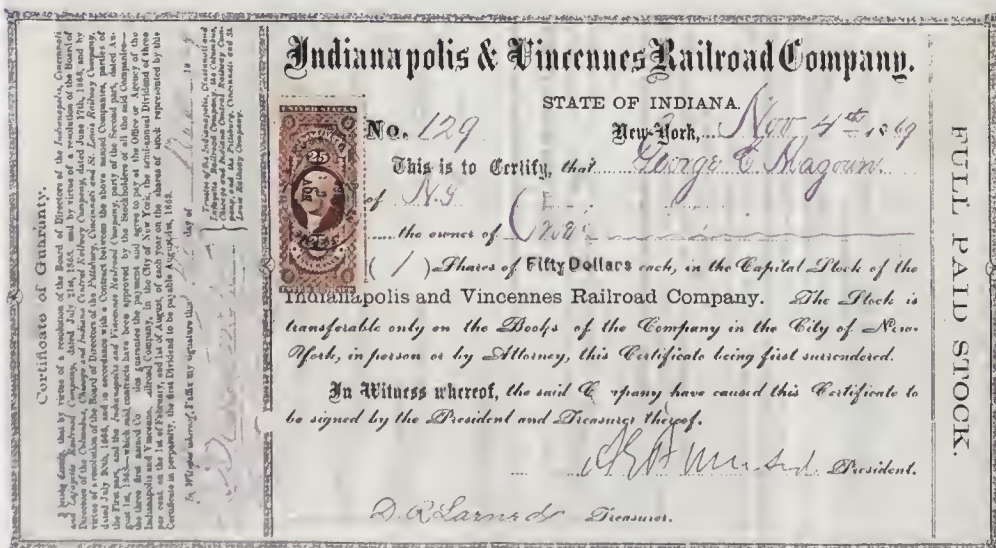 Indianapolis & Vincennes Railroad Company.
STATE OF INDIANA.
No. 129 New-York, Nov 4th 1869
This is to Certify, that George C Magoun
of N.Y.
the owner of
(1) Shares of Fifty Dollars each, in the Capital Stock of the
Indianapolis and Vincennes Railroad Company. The Stock is
transferable only on the Books of the Company in the City of New-
York, in person or by Attorney, this Certificate being first surrendered.
In Witness whereof, the said C mpany have caused this Certificate to
be signed by the President and Treasurer thereof.
President.
D. R. Larned Treasurer.
UNITED STATES
25
NOV
FULL PAID STOCK.
Certificate of Guaranty.
that by virtue of a resolution of the Board of Directors of the Indianapolis, Cincinnati
and Lafayette Railroad Company, dated July 21st, 1868, and by virtue of a resolution of the Board of
Directors of the Columbus, Chicago and Indiana Central Railway Company, dated June 17th, 1868, and by
virtue of a resolution of the Board of Directors of the Pittsburg, Cincinnati and St. Louis Railway Company,
dated July 30th, 1868, and in accordance with a Contract between the above named Companies, parties of
the First part, and the Indianapolis and Vincennes Railroad Company, party of the Second part, dated Au-
gust 1st, 1868,—which said contracts have been approved by the Stockholders of all the said Companies—
the three first named Co ies guarantee the payment and agree to pay at the Office or Agency of the
Indianapolis and Vincennes ailroad Company, in the City of New York, the semi-annual Dividend of three
per cent on the 1st of February, and 1st of August, of each year on the shares of stock represented by this
Certificate in perpetuity, the first Dividend to be payable August 1st, 1868.
In Witness whereof, I affix my signature this day of 18
Trustee of the Indianapolis, Cincinnati and
Lafayette Railroad Company, the Columbus,
Chicago and Indiana Central Railway Com-
pany, and the Pittsburg, Cincinnati and St.
Louis Railway Company.